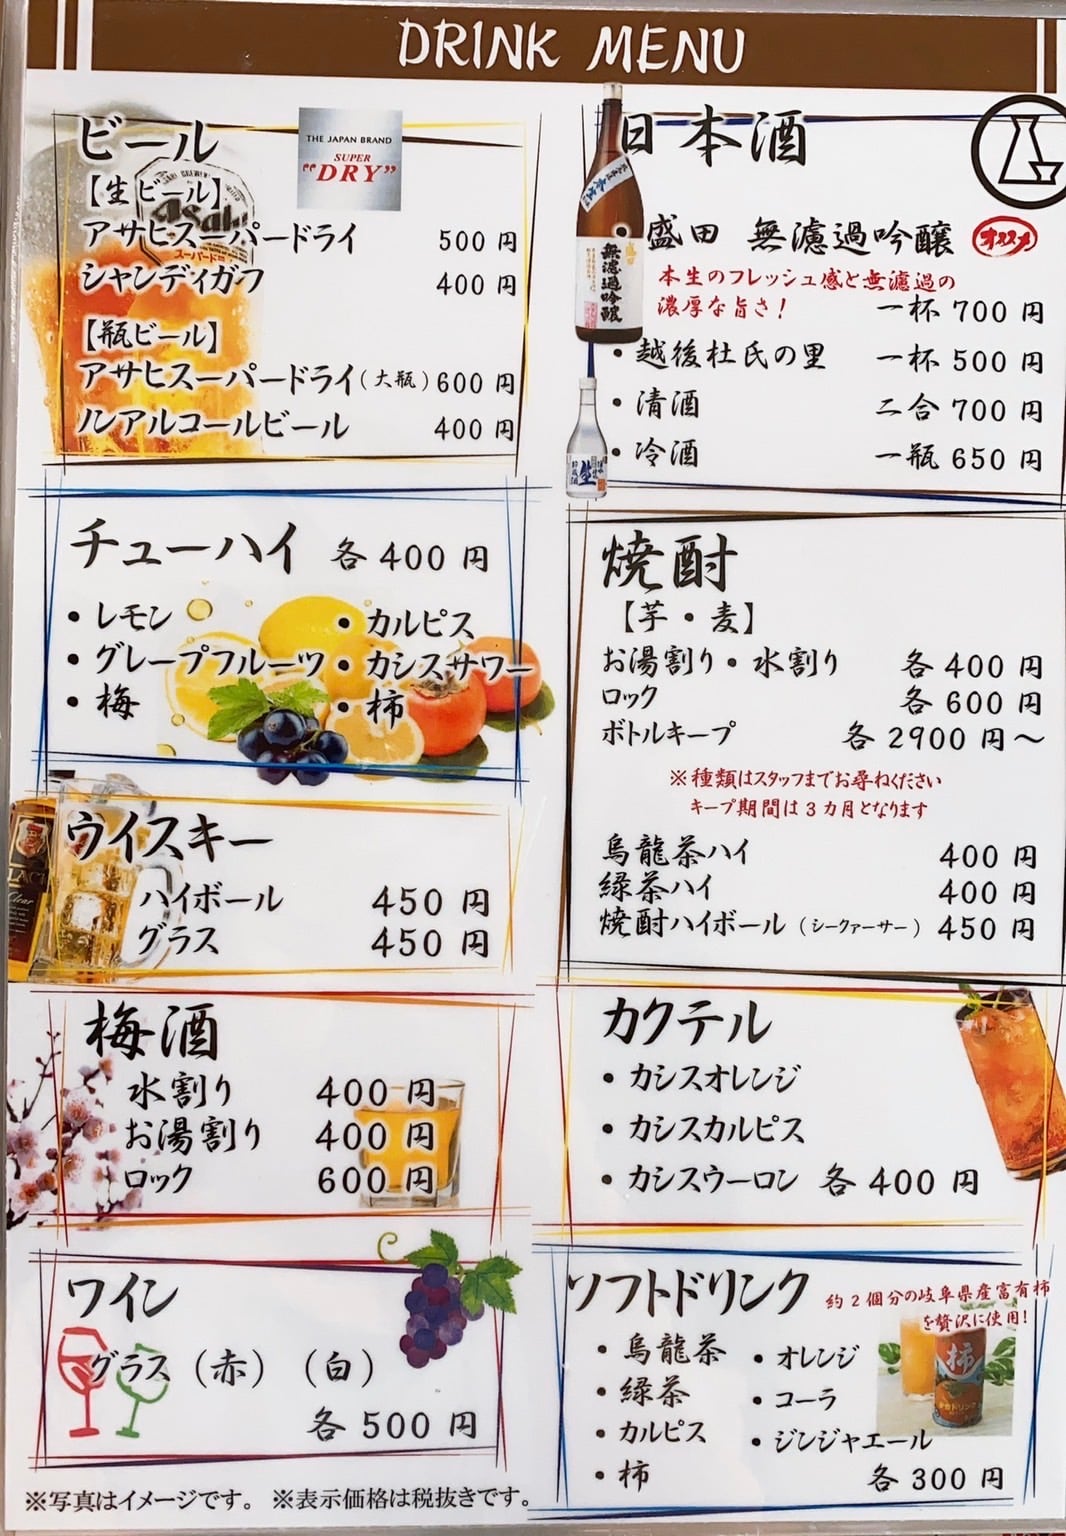 DRINK MENU
ビール
THE JAPAN BRAND
SUPER
"DRY"
【生ビール】
アサヒスーパードライ 500 円
シャンディガフ 400 円
【瓶ビール】
アサヒスーパードライ(大瓶) 600 円
ノンアルコールビール 400 円
Asahi
日本酒
・盛田 無濾過吟醸 オススメ
本生のフレッシュ感と無濾過の
濃厚な旨さ!
一杯 700 円
・越後杜氏の里 一杯 500 円
・清酒 二合 700 円
・冷酒 一瓶 650 円
無濾過吟醸
生
チューハイ 各 400 円
・レモン
・グレープフルーツ
・梅
・カルピス
・カシスサワー
・柿
焼酎
【芋・麦】
お湯割り・水割り 各 400 円
ロック 各 600 円
ボトルキープ 各 2900 円～
※種類はスタッフまでお尋ねください
キープ期間は 3 カ月となります
烏龍茶ハイ 400 円
緑茶ハイ 400 円
焼酎ハイボール (シークァーサー) 450 円
ウイスキー
ハイボール 450 円
グラス 450 円
Clear
梅酒
水割り 400 円
お湯割り 400 円
ロック 600 円
カクテル
・カシスオレンジ
・カシスカルピス
・カシスウーロン 各 400 円
ワイン
グラス (赤) (白)
各 500 円
ソフトドリンク
約 2 個分の岐阜県産富有柿
を贅沢に使用!
・烏龍茶
・緑茶
・カルピス
・柿
・オレンジ
・コーラ
・ジンジャエール
各 300 円
柿
※写真はイメージです。 ※表示価格は税抜きです。